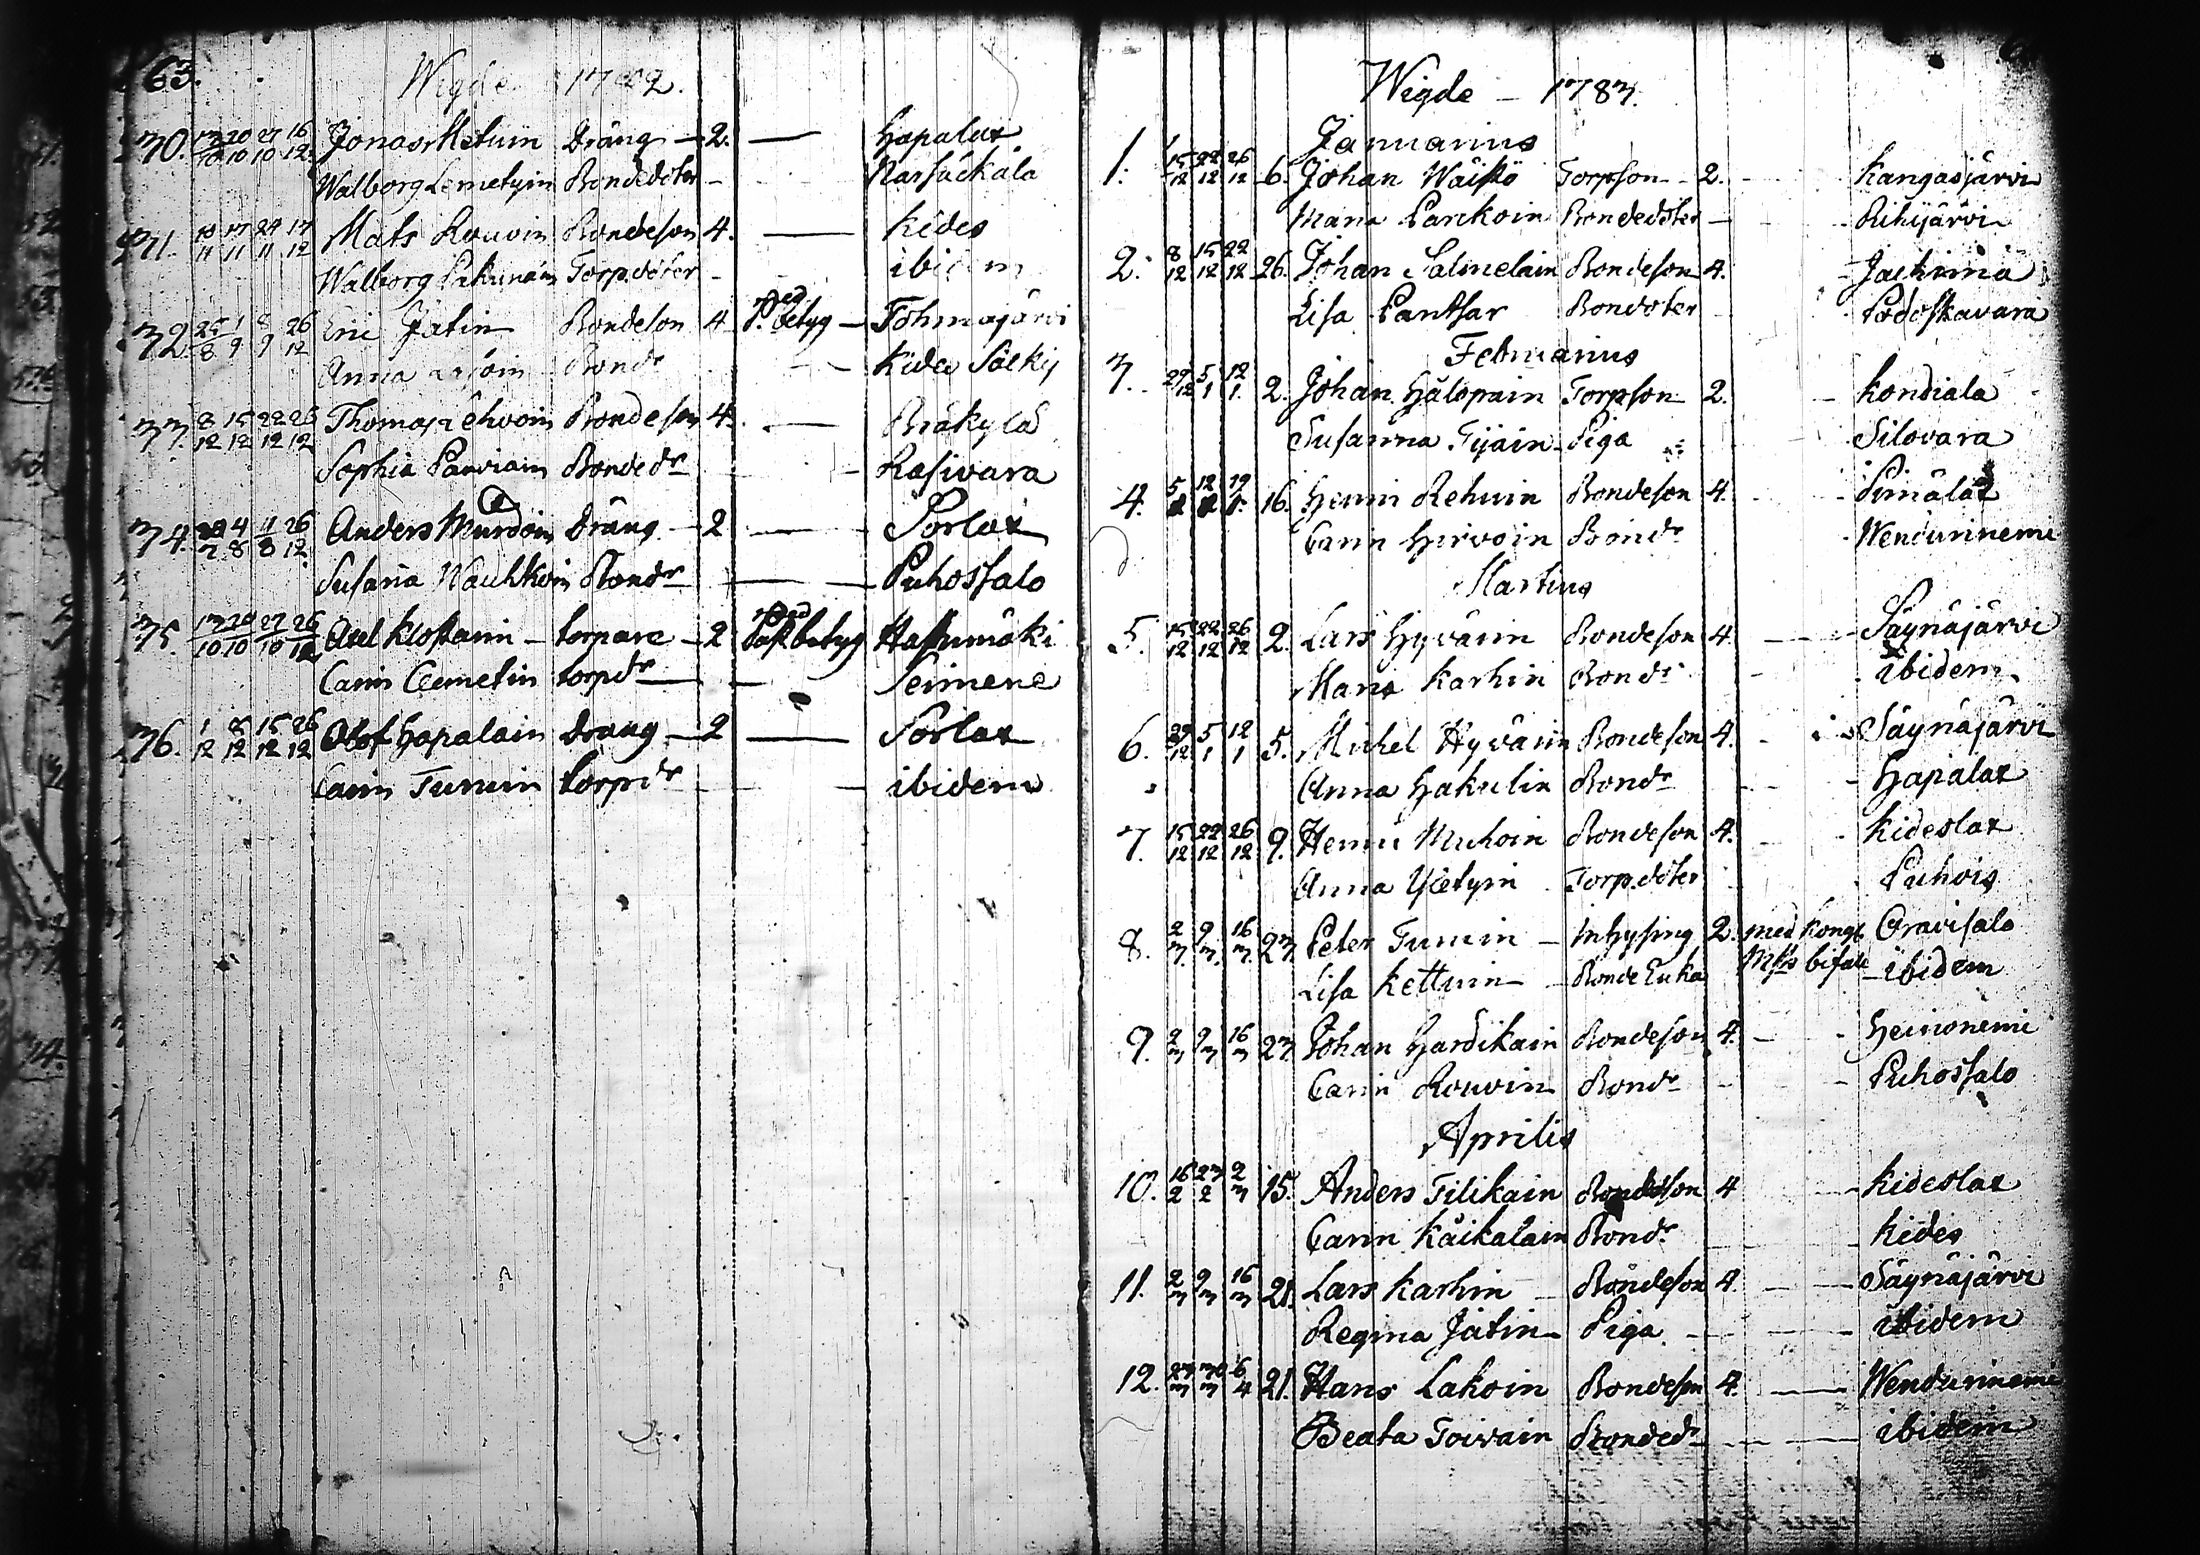 63.
Wigde 1782.
70. 13/10 20/10 27/10 16/12 Jonas Ketuin Dräng — 2. — Hapalax
Walborg Lemetyin Bondedoter - Narsäckälä
71. 10/11 17/11 24/11 17/12 Mats Rouvin Bondeson 4. — Kides
Walborg Pakunain Torpdoter - ibidem
72. 25/8 1/9 8/9 26/12 Eric Jatin Bondeson 4 med P. betyg — Tohmajärvi
Anna Bondr - Kides Sälkij
73. 8/12 15/12 22/12 26/12 Thomas Bondeson 4. — Bräkylä
Sophia Parviain Bondedr - Rasivara
74. 4/8 11/8 26/12 Anders Murdoin Dräng — 2 — Porlax
Susana Wauhkoin Bondr — Puhossalo
75. 13/10 20/10 27/10 26/12 Axel Klostarin — torpare — 2 med Past. betyg Hassumäki
Carin Clemetin torpdr — Peimene
76. 1/12 8/12 15/12 26/12 Olof Hapalain Dräng — 2 — Porlax
Carin Turuin torpdr - ibidem
Wigde — 1783.
Januarius
1. 15/12 22/12 26/12 6. Johan Wäistö Torpson - 2. Kangasjärvi
Maria Parikoin Bondedoter — Riihijärvi
2. 8/12 15/12 22/12 26. Johan Salmelain Bondeson 4. Jachima
Lisa Pantsar Bondoter Podoskavara
Februarius
3. 29/12 5/1 12/1 2. Johan Hälopain Torpson 2. Kondiala
Susanna Tijain Piga Silovara
4. 5 12 19 16. Henric Rehuin Bondeson 4. Pimälax
Carin Hirvoin Bondr Wenäurinemi
Martius
5. 15/12 22/12 26/12 2. Lars Hyvärin Bondeson 4. Säynäjärvi
Maria Karhin Bondr ibidem
6. 29/12 5/1 12/1 5. Michel Hyvärin Bondeson 4. Säynäjärvi
Anna Hakulin Bondr Hapalax
7. 15/12 22/12 26/12 9. Henric Muhoin Bondeson 4. Kideslax
Anna Yletyin Torp.doter Puhois
8. 2/3 9/3 16/3 23. Peter Turuin — Inhysing 2. med Kongl Oravisalo
Lisa Kettuin — Bonde Enka Mtts bifall ibidem
9. 2/3 9/3 16/3 23. Johan Hardikain Bondeson 4. Heinonemi
Carin Rouvin Bondr Puhossalo
Aprilis
10. 16/2 23/2 2/3 15. Anders Tilikain Bondeson 4 Kideslax
Carin Käikäläin Bondr Kides
11. 2/3 9/3 16/3 21. Lars Karhin — Bondeson 4. Säynäjärvi
Regina Jatin Piga ibidem
12. 23/3 30/3 6/4 21. Hans Lakoin Bondeson 4. — Wenäurinemi
Beata Toivain Bondedr ibidem